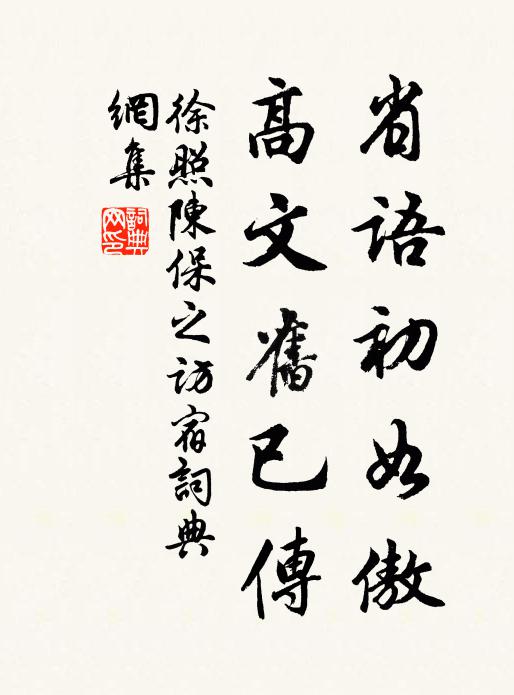 省語初如傲
高文舊已傳
徐照陳保之訪宿詞典
網集
詞典
网印